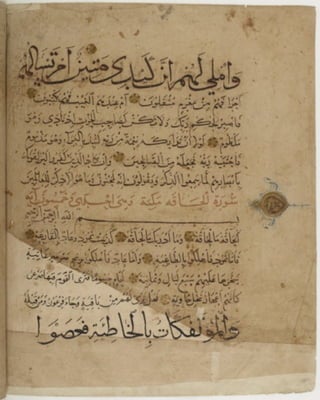 وأملي لهم إن كيدي متين أم تسألهم
أجرا فهم من مغرم مثقلون أم عندهم الغيب فهم يكتبون
فاصبر لحكم ربك ولا تكن كصاحب الحوت إذ نادى وهو
مكظوم لولا أن تداركه نعمة من ربه لنبذ بالعراء وهو مذموم
فاجتبيه ربه فجعله من الصالحين وإن يكاد الذين كفروا ليزلقونك
بأبصارهم لما سمعوا الذكر ويقولون إنه لمجنون وما هو إلا ذكر للعالمين
سورة الحاقة مكية وهي احدى وخمسون آية
بسم الله الرحمن الرحيم
الحاقة ما الحاقة وما أدراك ما الحاقة كذبت ثمود وعاد بالقارعة
فأما ثمود فأهلكوا بالطاغية وأما عاد فأهلكوا بريح صرصر عاتية
سخرها عليهم سبع ليال وثمانية أيام حسوما فترى القوم فيها صرعى
كأنهم أعجاز نخل خاوية فهل ترى لهم من باقية وجاء فرعون ومن قبله
والمؤتفكات بالخاطئة فعصوا